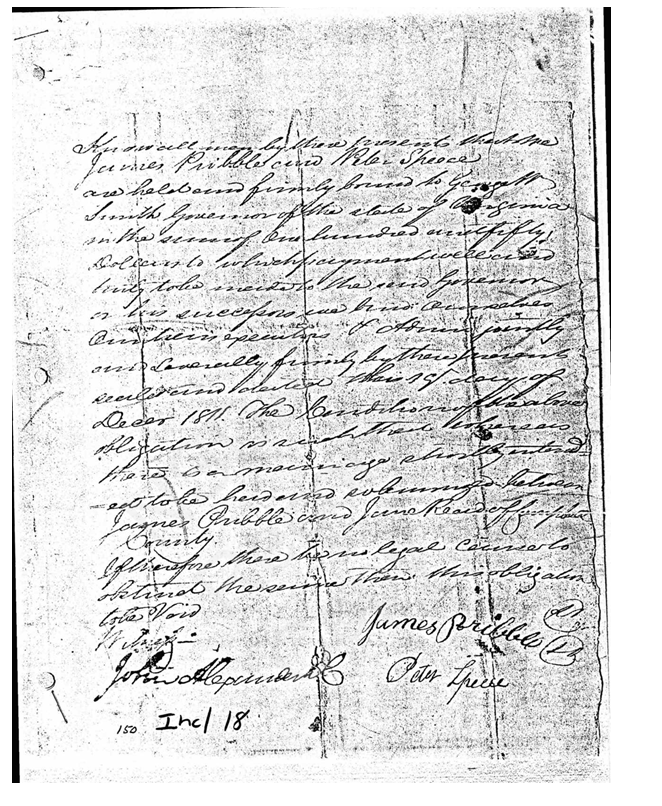 Know all men by these presents that we
James Pribble and Peter Speece
are held and firmly bound to George W
Smith Governor of the state of Virginia
in the sum of One hundred and fifty
Dollars to which payment well and
truly to be made to the said Governor
or his successors we bind Ourselves
Our heirs executors & Admrs jointly
and Severally firmly by these presents
sealed and dated this 19th day of
Decer 1811. The Condition of the above
obligation is such that whereas
there is a marriage shortly intend
-ed to be had and solemnized between
James Pribble and Jane Read of
County.
If therefore there be no legal cause to
obstruct the same then this obligation
to be Void
Witness
James Pribble
John Alexander
Peter Speece
150 Incl 18